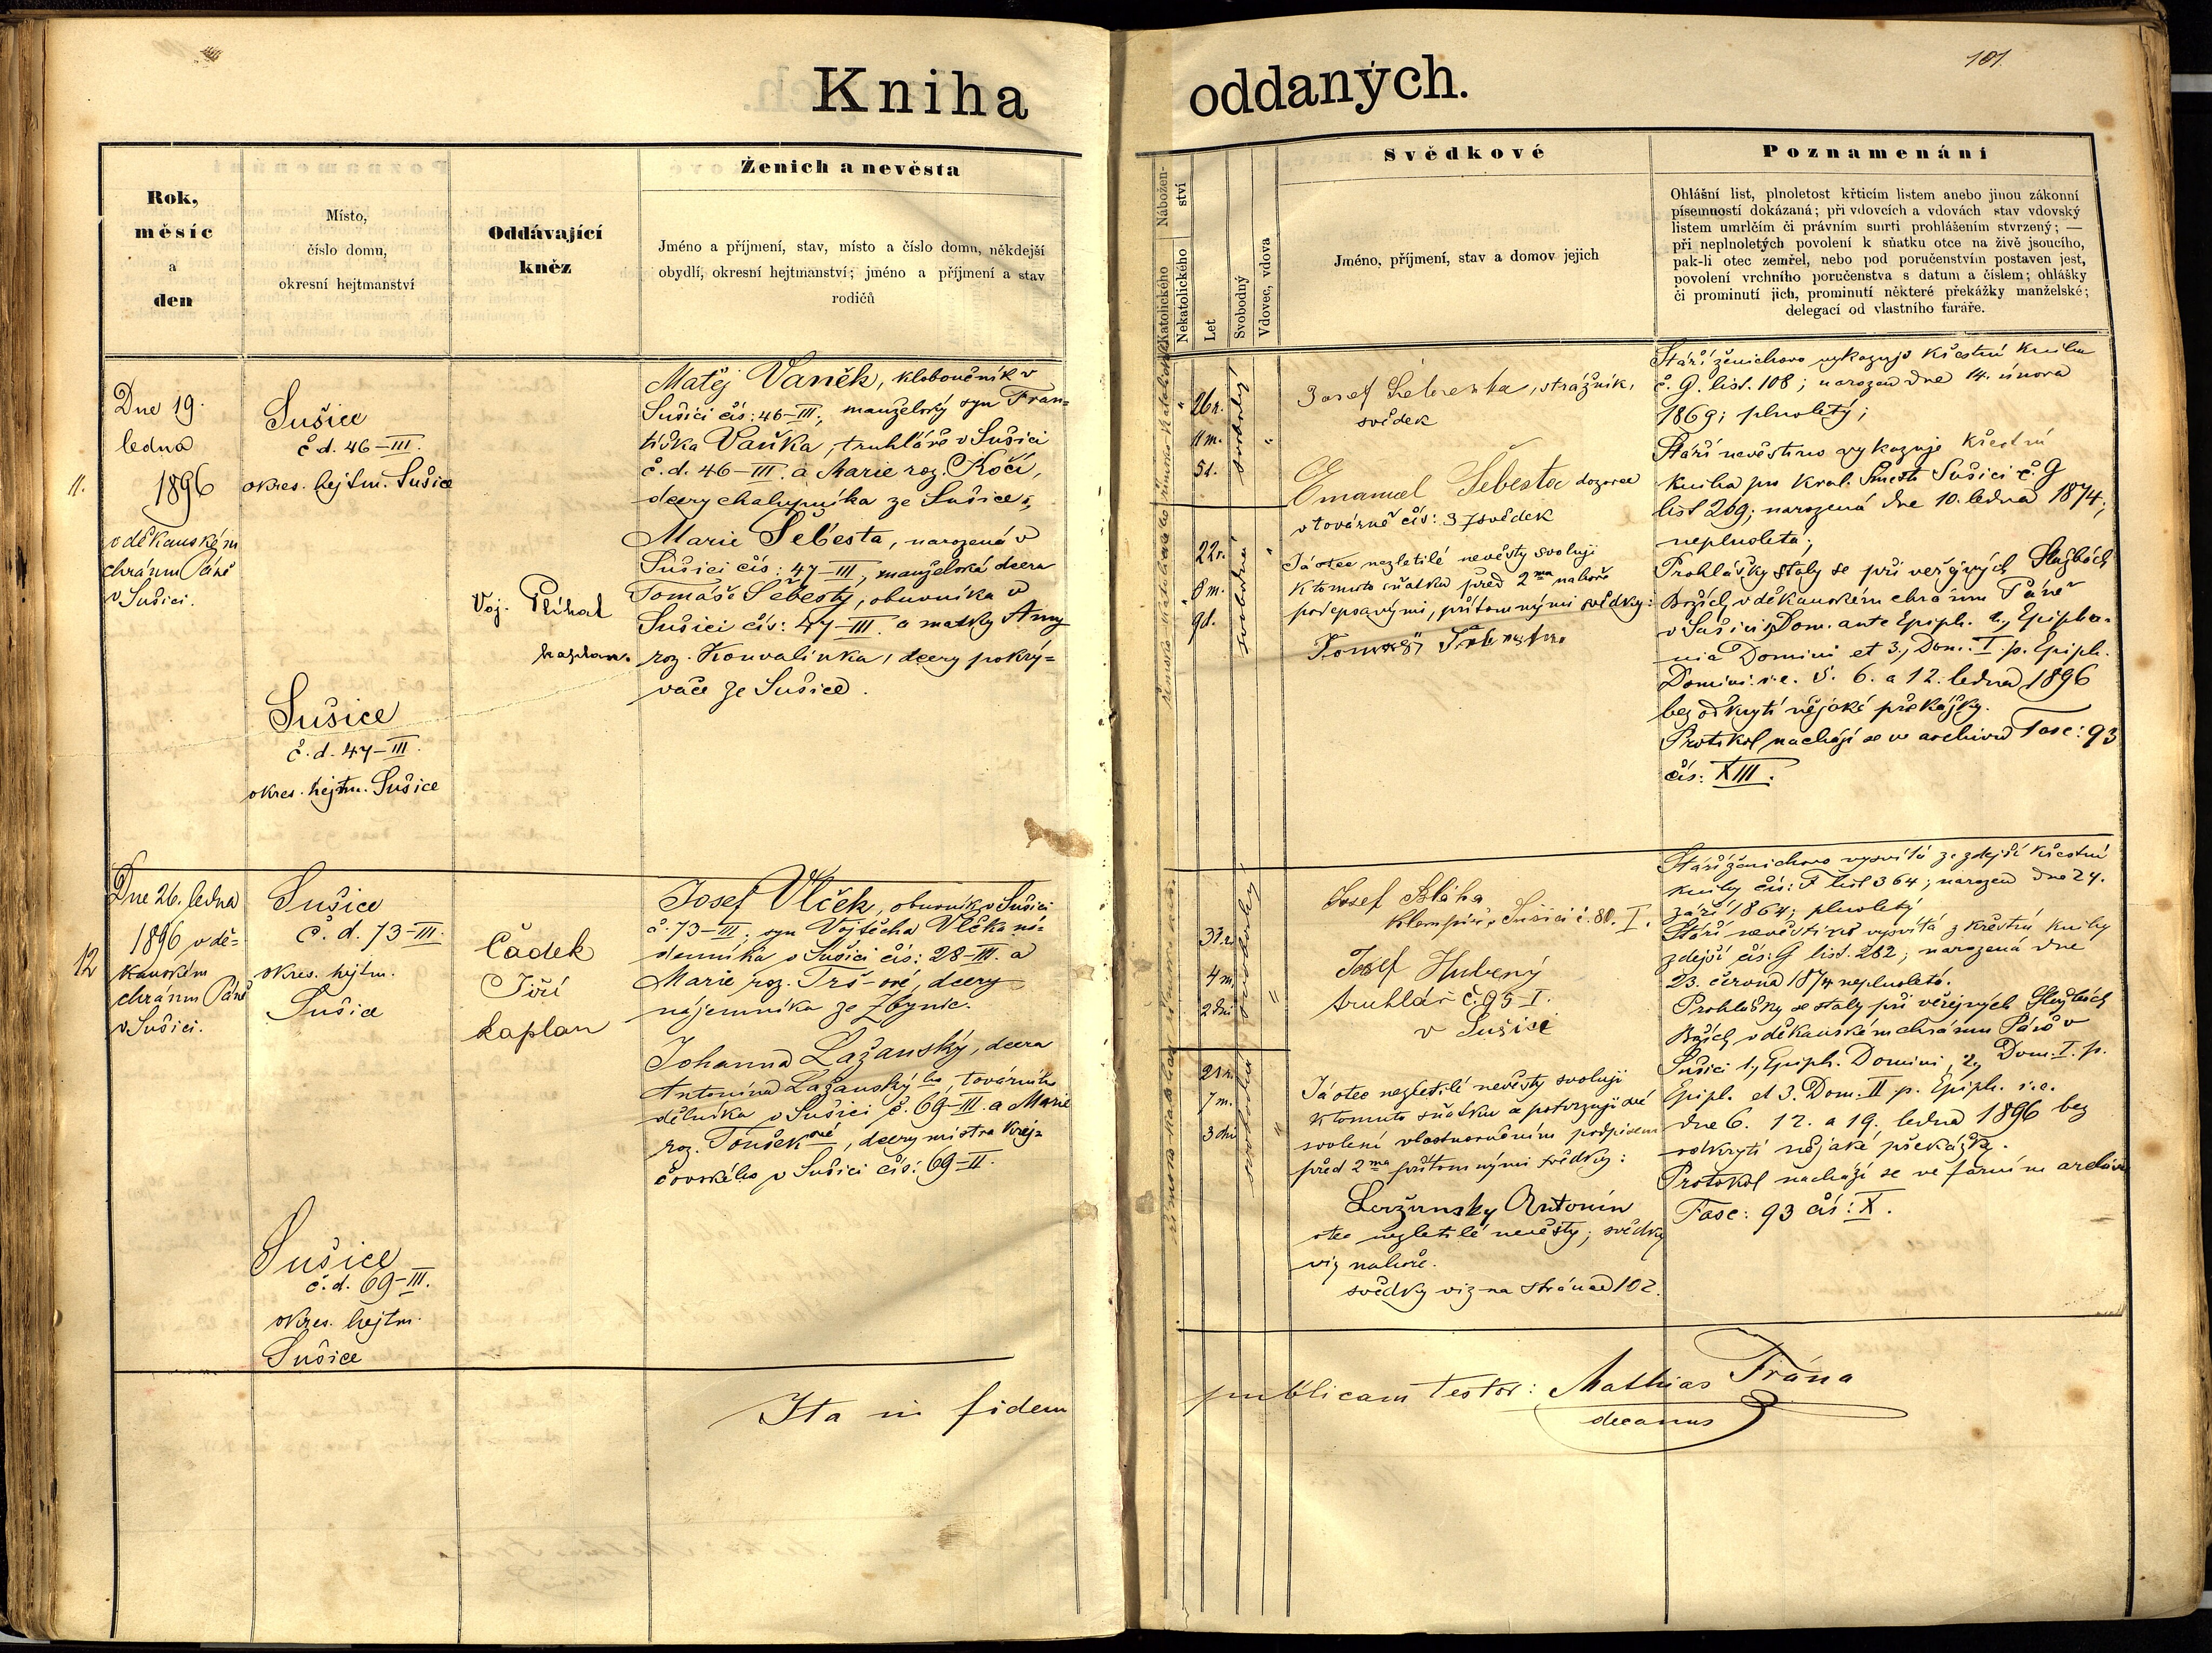 101.
Kniha oddaných.
Rok,
měsíc
a
den
Místo,
číslo domu,
okresní hejtmanství
Oddávající
kněz
Ženich a nevěsta
Jméno a příjmení, stav, místo a číslo domu, někdejší
obydlí, okresní hejtmanství; jméno a příjmení a stav
rodičů
Nábožen-
ství
Katolického
Nekatolického
Let
Svobodný
Vdovec, vdova
Svědkové
Jméno, příjmení, stav a domov jejich
Poznamenání
Ohlášní list, plnoletost křticím listem anebo jinou zákonní
písemností dokázaná; při vdovcích a vdovách stav vdovský
listem umrlčím či právním smrti prohlášením stvrzený; —
při neplnoletých povolení k sňatku otce na živě jsoucího,
pak-li otec zemřel, nebo pod poručenstvím postaven jest,
povolení vrchního poručenstva s datum a číslem; ohlášky
či prominutí jich, prominutí některé překážky manželské;
delegací od vlastního faráře.
11.
Dne 19.
ledna
1896
v děkanském
chrámu Páně
v Sušici.
Sušice
č d. 46–III.
okres. hejtm. Sušice
Sušice
č. d. 47–III.
okres. hejtm. Sušice
Voj. Přihal
kaplan.
Matěj Vaněk, kloboučník v
Sušici čís: 46–III; manželský syn Fran=
tiška Vaňka, truhláře v Sušici
č. d. 46–III. a Marie roz. Kočí,
dcery chalupníka ze Sušice;
Marie Šebesta, narozená v
Sušici čís: 47–III, manželská dcera
Tomáše Šebesty, obuvníka v
Sušici čís: 47–III. a matky Anny
roz. Konvalinka, dcery pokrý=
vače ze Sušice.
26 r.
11 m.
5 d.
svobodný
22 r.
8 m.
9 d.
svobodná
Josef, strážník,
svědek
Emanuel Šebesta dozorce
v továrně čís: 37 svědek
Já otec nezletilé nevěsty svoluji
k tomuto sňatku před 2ma nahoře
podepsanými, přítomnými svědky:
Tomáš Šebesta
Stáří ženichovo vykazuje křestní kniha
č. G. list. 108; narozen dne 14. února
1869; plnoletý;
Stáří nevěstino vykazuje křestní
kniha pro král. město Sušici č. G
list 269; narozená dne 10. ledna 1874;
neplnoletá;
Prohlášky staly se při veřejných Službách
Božích v děkanském chrámu Páně
v Sušici 1, Dom. ante Epiph. 2, Epipha-
nia Domini et 3, Dom. I. p. Epiph.
Domini. i. e. 5. 6. a 12. ledna 1896
bez odkrytí nějaké překážky.
Protokol nachází se v archivu Fasc: 93
čís: XIII.
12
Dne 26. ledna
1896 v dě=
kanském
chrámu Páně
v Sušici.
Sušice
č. d. 73–III.
okres. hejtm.
Sušice
Sušice
č. d. 69–III.
okres. hejtm.
Sušice
Čádek
Jiří
kaplan
Josef Vlček, obuvník v Sušici
č. 73–III; syn Vojtěcha Vlčka ná=
denníka v Sušici čís: 28–III. a
Marie roz. Trš–ové, dcery
nájemníka ze Zbynic.
Johanna Lažanský, dcera
Antonína Lažanskýho, továrního
dělníka v Sušici č. 69–III. a Marie
roz. Toušekové, dcery mistra krej=
čovského v Sušici čís: 69–II.
31 r.
4 m.
2 dni
svobodný
21 r.
7 m.
3 dni
svobodná
Josef Bláha
klempíř v Sušici č. 80. I.
Josef Hubený
truhlář č. 95–I.
v Sušici
Já otec nezletilé nevěsty svoluji
k tomuto sňatku a potvrzuji své
svolení vlastnoručním podpisem
před 2ma přítomnými svědky:
Lažansky Antonín
otec nezletilé nevěsty; svědky
viz nahoře.
svědky viz na straně 102.
Stáří ženichovo vysvítá ze zdejší křestní
knihy čís: F list 364; narozen dne 24.
září 1864; plnoletý
Stáří nevěstino vysvítá z křestní knihy
zdejší čís: G list. 282; narozená dne
23. června 1874 neplnoletá.
Prohlášky se staly při veřejných Službách
Božích v děkanském chrámu Páně v
Sušici 1, Epiph. Domini, 2, Dom. I. p.
Epiph. et 3. Dom. II p. Epiph. i. e.
dne 6. 12. a 19. ledna 1896 bez
odkrytí nějaké překážky.
Protokol nachází se ve farním archivu
Fasc: 93 čís: X.
Ita in fidem publicam testor: Mathias Frána
decanus